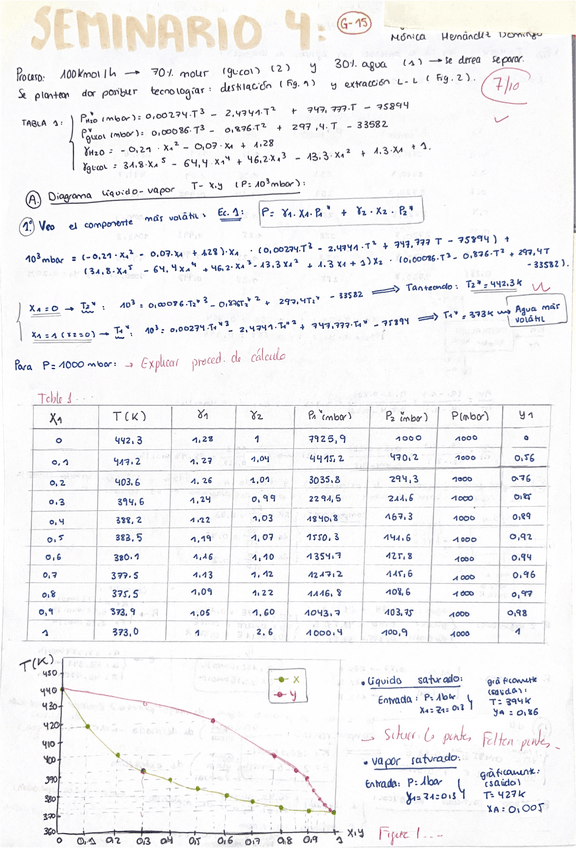 SEMINARIO 4:
G-15
Mónica Hernández Domingo
Proceso: 100Kmol/h → 70% molar (glucol) (2) y 30% agua (1) → se desea separar.
Se plantean dos posibles tecnologías: destilación (Fig. 1) y extracción L-L (Fig. 2).
7/10
TABLA 1:
Pº H2O (mbar) = 0,00274·T³ - 2,4741·T² + 747,777·T - 75894
Pº glucol (mbar) = 0,00086·T³ - 0,876·T² + 297,4·T - 33582
γH2O = -0,21·X1² - 0,07·X1 + 1.28
γglucol = 31.8·X1⁵ - 64,4 X1⁴ + 46.2·X1³ - 13.3·X1² + 1.3·X1 + 1.
A. Diagrama líquido-vapor T-x,y (P=10³mbar):
1º Veo el componente más volátil: Ec. 1: P = γ1·X1·P1* + γ2·X2·P2*
10³mbar = (-0,21·X1² - 0,07·X1 + 1.28)·X1·(0,00274T³ - 2.4741·T² + 747,777 T - 75894) +
(31,8·X1⁵ - 64,4X1⁴ + 46.2·X1³ - 13.3X1² + 1.3X1 + 1)X2·(0,00086·T³ - 0,876·T² + 297,4T
- 33582).
X1=0 → T2*: 10³ = 0,00086·T2*³ - 0,876T2*² + 297,4T2* - 33582 ⟹ Tanteando: T2* = 442.3K
X1=1 (X2=0) → T1*: 10³ = 0,00274·T1*³ - 2,4741·T1*² + 747,777·T1* - 75894 ⟹ T1* = 373K → Agua más volátil
Para P=1000 mbar: → Explicar proced. de cálculo
Table 1...
X1 T(K) γ1 γ2 P1*(mbar) P2*(mbar) P(mbar) y1
0 442.3 1,28 1 7925,9 1000 1000 0
0,1 417.2 1,27 1,04 4415,2 470,2 1000 0,56
0,2 403.6 1.26 1,01 3035,8 294,3 1000 0.76
0.3 394,6 1,24 0,99 2291,5 211,6 1000 0,85
0,4 388,2 1,22 1,03 1840,8 167,3 1000 0,89
0,5 383,5 1,19 1,07 1550,3 141,6 1000 0,92
0,6 380.1 1,16 1,10 1354,7 125,8 1000 0,94
0,7 377.5 1,13 1,12 1217,2 115,6 1000 0,96
0,8 375,5 1,09 1,22 1116,8 108,6 1000 0,97
0,9 373,9 1,05 1,60 1043,7 103,75 1000 0,98
1 373,0 1 2,6 1000,4 100,9 1000 1
T(K)
450
440
430
420
410
400
390
380
370
360
0 0,1 0,2 0,3 0,4 0,5 0,6 0,7 0,8 0,9 1 x,y
x
y
• Líquido saturado:
Entrada: P=1bar
X1=Z1=0,3
gráficamente
(salida):
T=394K
yA=0,86
→ Situar los puntos Faltan puntos
• Vapor saturado:
Entrada: P=1bar
y1=Z1=0,3
gráficamente:
(salida)
T=427K
XA=0,005
Figure 1....